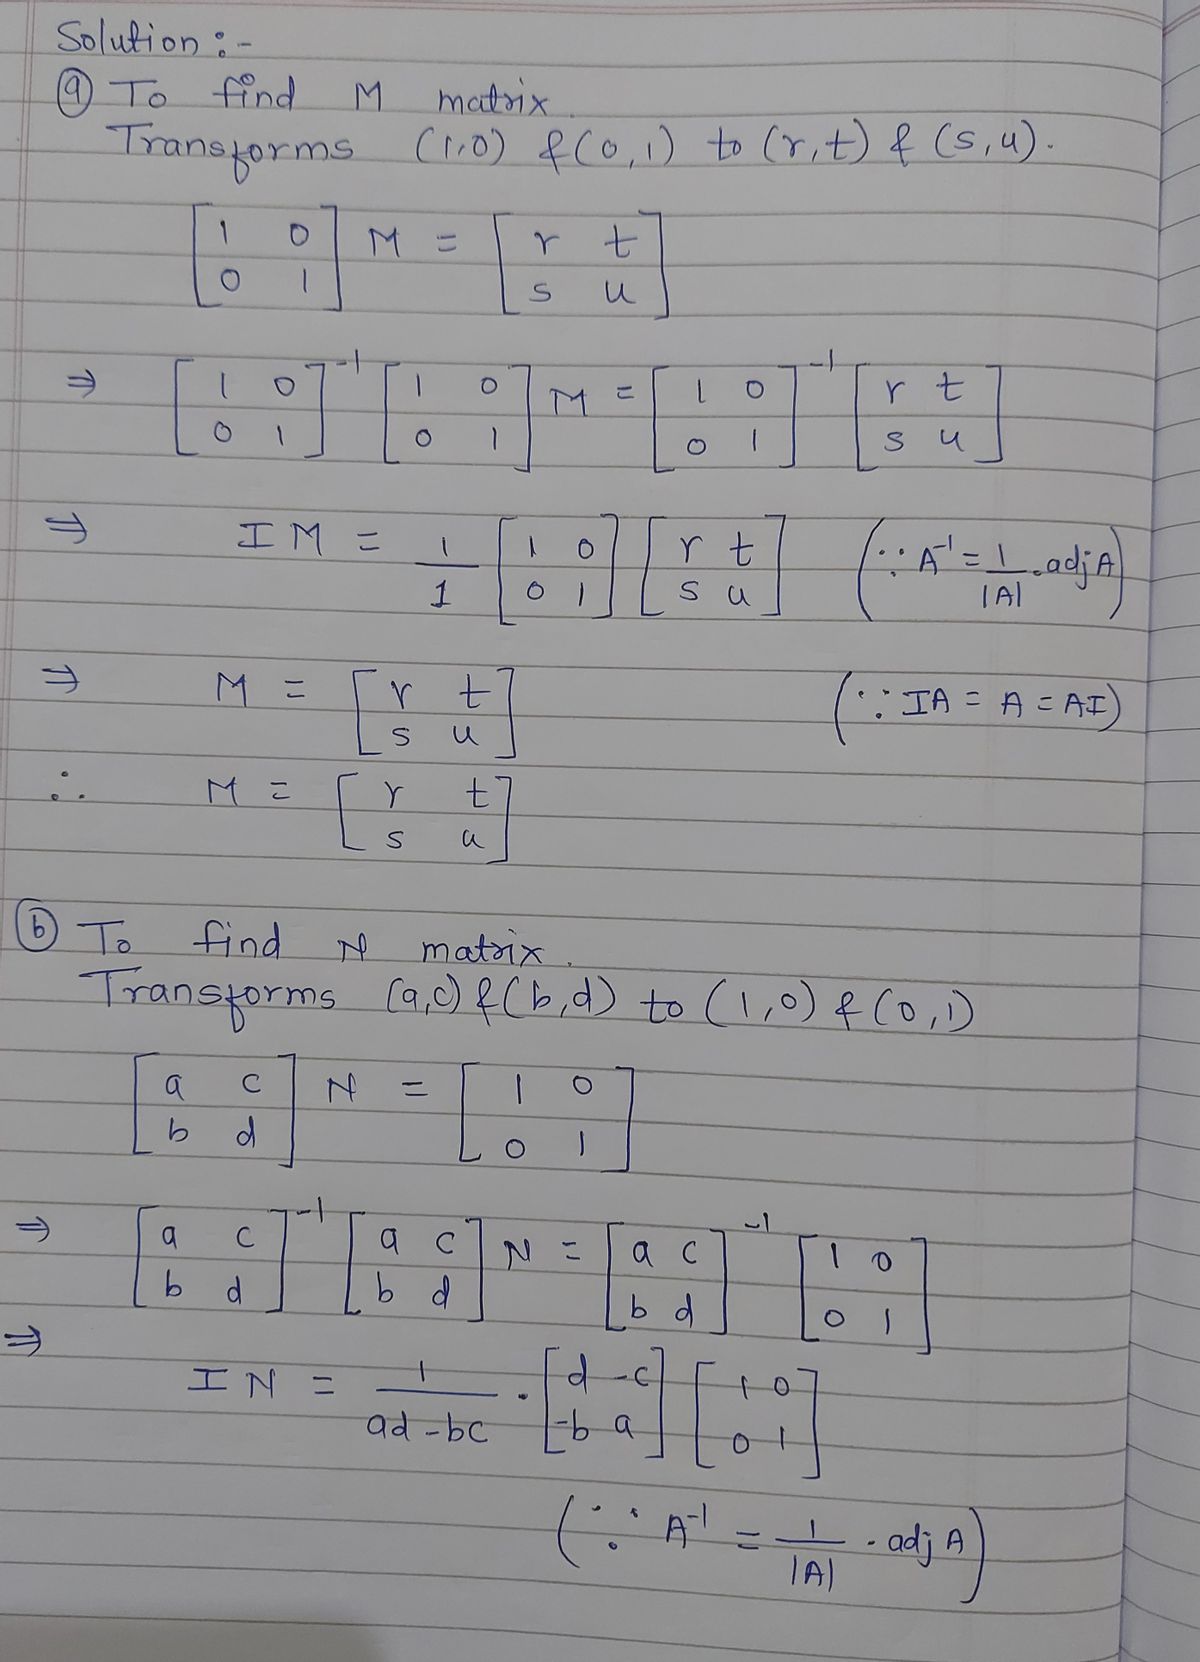 Solution :-
(a) To find M matrix.
Transforms (1,0) & (0,1) to (r,t) & (s,u).
[1 0; 0 1] M = [r t; s u]
⇒ [1 0; 0 1]⁻¹ [1 0; 0 1] M = [1 0; 0 1]⁻¹ [r t; s u]
⇒ IM = 1/1 [1 0; 0 1] [r t; s u] (∵ A⁻¹ = 1/|A| . adj A)
⇒ M = [r t; s u] (∵ IA = A = AI)
∴ M = [r t; s u]
(b) To find N matrix.
Transforms (a,c) & (b,d) to (1,0) & (0,1)
[a c; b d] N = [1 0; 0 1]
⇒ [a c; b d]⁻¹ [a c; b d] N = [a c; b d]⁻¹ [1 0; 0 1]
⇒ IN = 1/(ad-bc) . [d -c; -b a] [1 0; 0 1]
(∵ A⁻¹ = 1/|A| . adj A)